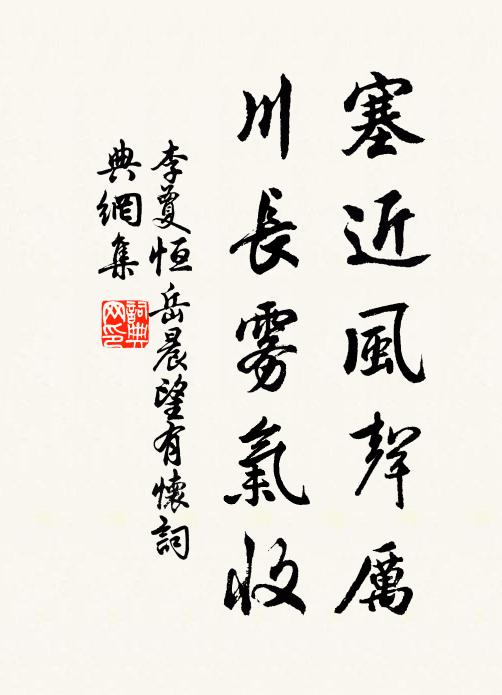 塞近風聲厲
川長雾氣收
李夐恒岳晨望有懷詞
典網集
詞典
网印